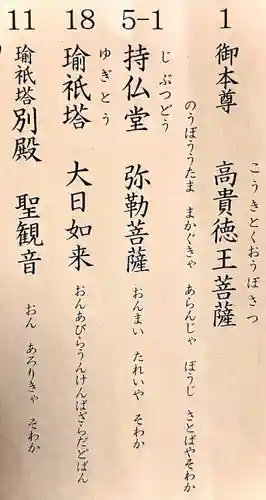 1 御本尊 高貴徳王菩薩
こうきとくおうぼさつ
のうぼううたま まかぐきゃ あらんじゃ ぼうじ さとばやそわか
5-1 持仏堂 弥勒菩薩
じぶつどう
おんまい たれいや そわか
18 瑜祇塔 大日如来
ゆぎとう
おんあびらうんけんばざらだどばん
11 瑜祇塔別殿 聖観音
おん あろりきゃ そわか